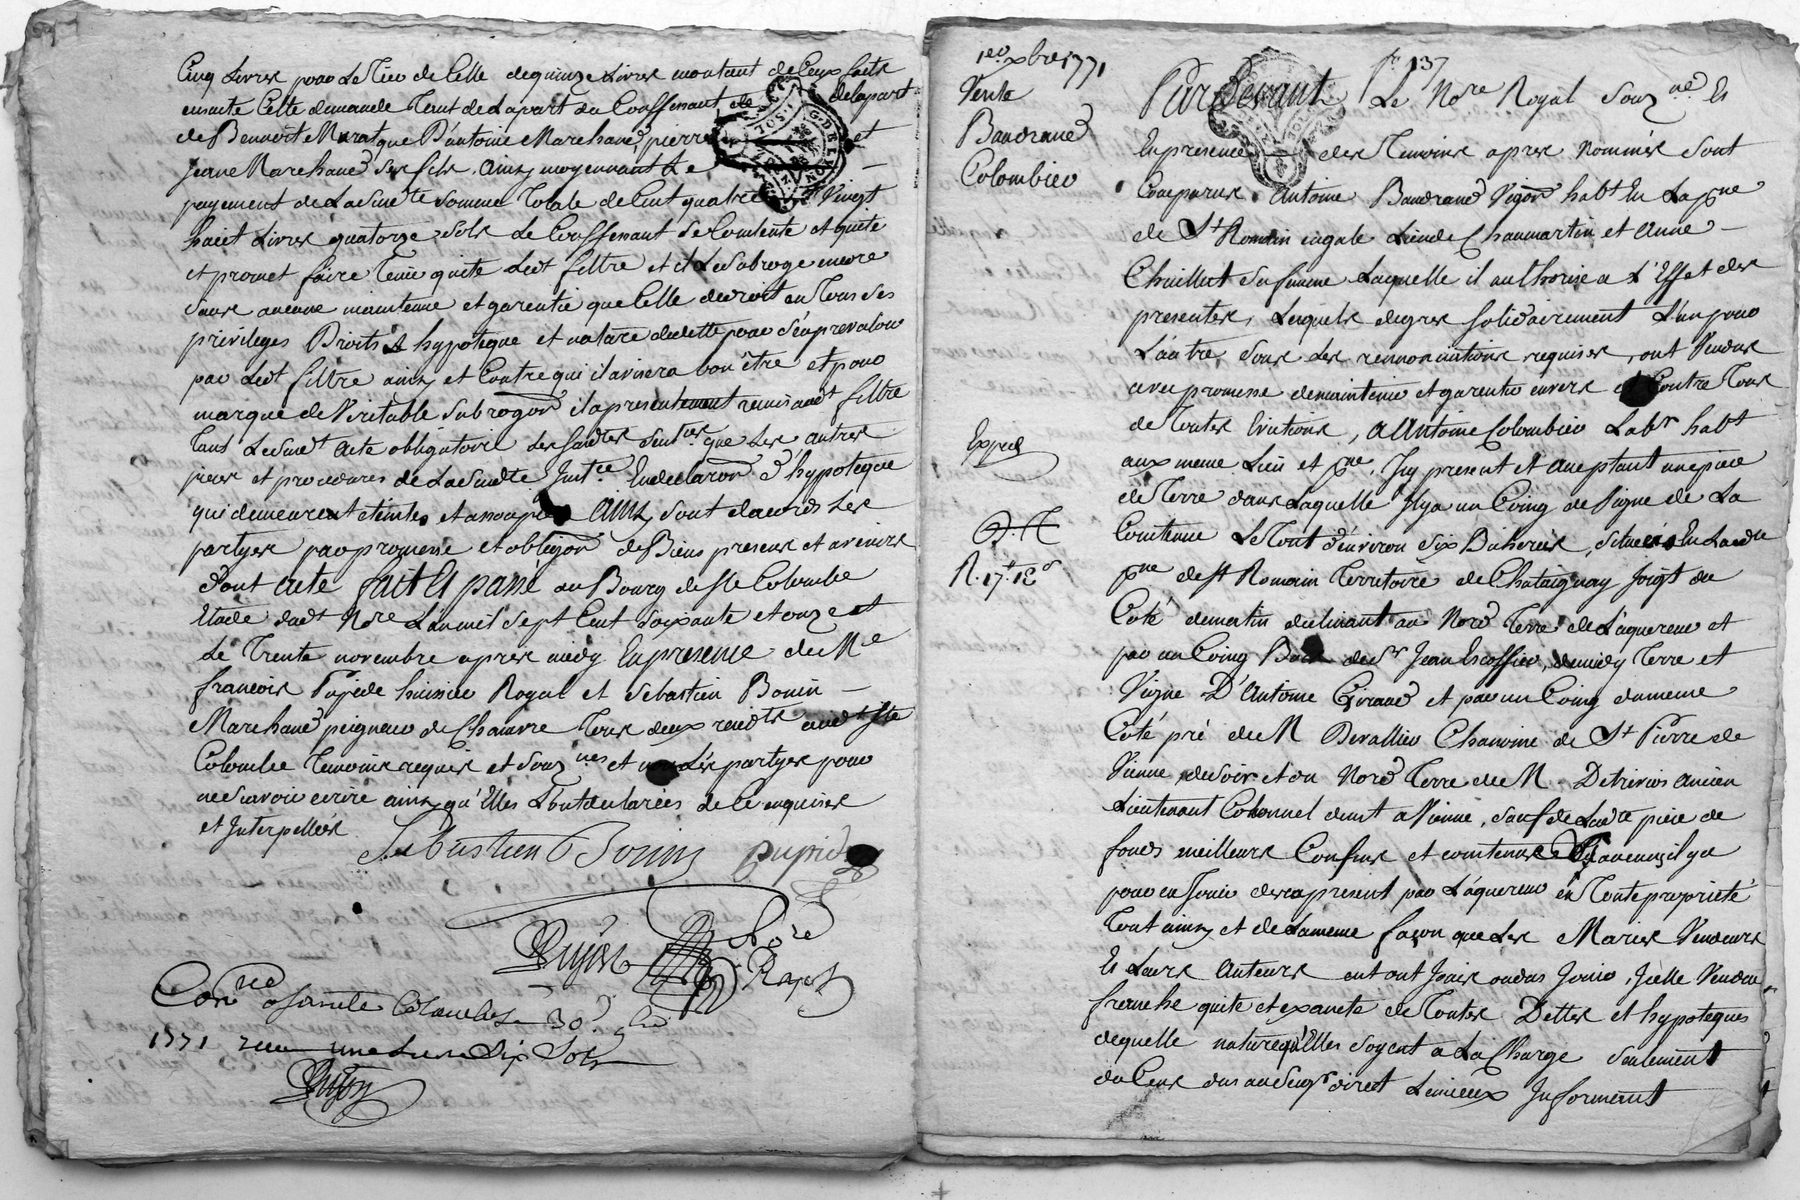 Cinq Livres pour Le Tiers de Celle de quinze Livres montant de Ceux faits
ensuite Cette demande Tant de La part du Confessant de la part
de Bennoit Marat que D'antoine Marchand, pierre et
Jeane Marchand ses fils. Ainsy moyennant Le
payement de La Susdte somme Totale de Cent quatre Vingt
huict Livres quatorze Sols Le Confessant Se Contente et quitte
et promet faire Tenir quite Ledt filtre et il Le Subroge encore
Sans aucune maintenue et garentie que Celle de droit en Tous Ses
privileges Droits & hypoteque et nature de dette pour s'en prevaloir
par Ledt filtre ainsy et Contre qui il avisera bon être et pour
marque de Veritable Subrogaon il a presentement remis audt filtre
Tant Le Susdt Acte obligatoire que Les autres
pieces et procedures de La Susdte Instce En declaraon d'hypoteque
qui demeurent éteintes et assoupies Ainsy sont d'acord Les
partyes par promesse et obligaon de Biens presens et avenirs
dont acte fait Et passé au Bourg de Ste Colombe
Etude dudt Nore L'an mil Sept Cent Soixante et onze et
Le Trente novembre apres midy En presence de Me
francois huissier Royal et Sebastien Bonin
Marchand peigneur de Chanvre Tous deux residts audt Ste
Colombe Temoins requis et Souznes et non Les partyes pour
ne Savoir ecrire ainsy qu'Elles L'ont declarées de Ce enquises
et Interpellées
Sebastien Bonin
Nore
Royal
Conrlé a sainte Colombe Le 30e 9bre
1771 reçu une Livre Six Sols
1er xbre 1771
Vente
Baudrand
Colombier
Exped
R. 17 12s
fo 137
Pardevant Le Nore Royal Souzné Et
En presence des Temoins apres Nommés Sont
Comparus Antoine Baudrand Vigon habt En La pne
de St Romain en gale Lieu de Chanmartin et Anne
Chuillut Sa femme Laquelle il authorise a L'Effet des
presentes, Lesquels de gres Solidairement L'un pour
L'autre Sous Les rennonciations requises, ont Vendus
avec promesse de maintenue et garentie envers et Contre Tous
de Toutes Evictions, a Antoine Colombier Labr habt
aux meme Lieu et pne, Icy present et Aceptant une piece
de Terre dans Laquelle Il y a un Coing de Vigne de La
Contenue Le Tout d'environ Six Bicherées, Située En Ladte
pne de St Romain Territoire de Chataignay Joigt du
Coté de matin declinant au Nord Terre de L'aquereur et
par un Coing Bois de Sr Jean Escoffier, de midy Terre et
Vigne D'Antoine Giraud et par un Coing du meme
Coté pré de M Devallier Chanoine de St Pierre de
Vienne de Soir et du Nord Terre de M. Detrivios Ancien
Lieutenant Colonnel demt a Vienne, Sauf de Ladte piece de
fonds meilleurs Confins et contenues Si aucuns il y a
pour en Jouir des a present par L'aquereur en Toute propriété
Tout ainsy et de La meme façon que Les Mariés Vendeurs
Et Leurs Auteurs en ont Jouis ou dus Jouir, Icelle Vendue
franche quite et exancte de Toutes Dettes et hypoteques
de quelle nature qu'Elles Soyent a La Charge Seulement
du Cens dus au Seigr direct Le mieux Informent